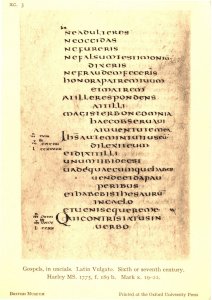 B.C. 3
NEADULTERES
NEOCCIDAS
NEFURERIS
NEFALSUMTESTIMONIŪ
DIXERIS
NEFRAUDEMFECERIS
HONORAPATREMTUUM
ETMATREM
ATILLERESPONDENS
AITILLI
MAGISTEROMNIA
HAECOBSERUAUI
AIUUENTUTEMEA
IHSAUTEMINTUITUSEU
DILEXITEUM
ETDIXITILLI
UNUMTIBIDEEST
UADEQUAECUMQUEHABES
UENDEETDAPAU
PERIBUS
ETHABEBISTHESAURŪ
INCAELO
ETUENISEQUEREME
QUICONTRISTATUSIN
UERBO
Gospels, in uncials. Latin Vulgate. Sixth or seventh century.
Harley MS. 1775, f. 169 b. Mark x. 19-22.
British Museum
Printed at the Oxford University Press